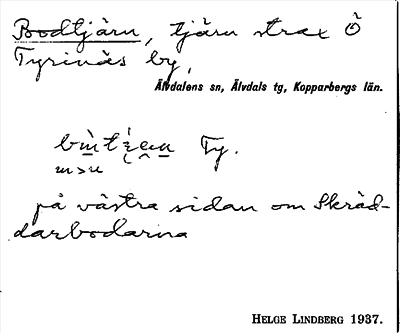 Bodtjärn, tjärn strax Ö
Tyrinäs by,
Älvdalens sn, Älvdals tg, Kopparbergs län.
Ty.
m>u
på västra sidan om Skräd-
darbodarna
HELGE LINDBERG 1937.